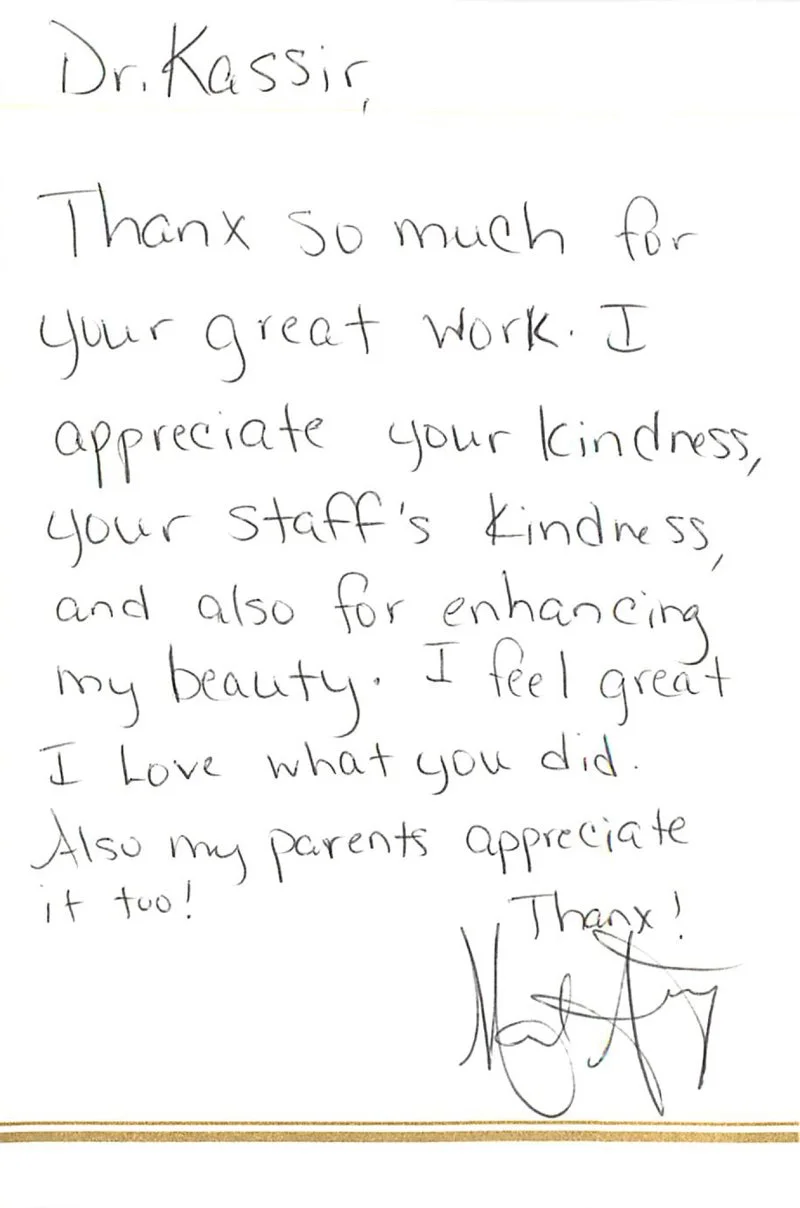 Dr. Kassir,
Thanx so much for
your great work. I
appreciate your kindness,
your staff's kindness,
and also for enhancing
my beauty. I feel great
I Love what you did.
Also my parents appreciate
it too!
Thanx!